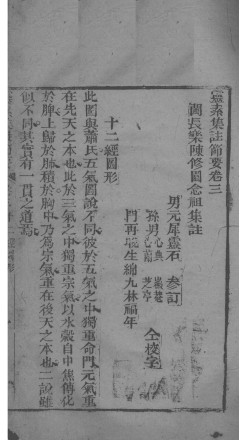 靈素集註節要卷三
閩長樂陳修園念祖集註
男元犀靈石 參訂
孫男心典
心蘭 仝校字
門再晚生綿九林福年
十二經圖形
此圖與蕭氏五氣圖說不同彼於五氣之中獨重命門元氣重
在先天之本也此於三氣之中獨重宗氣以水穀自中焦傳化
於脾上歸於肺積於胸中乃為宗氣重在後天之本也二說雖
似不同其實有一貫之道焉